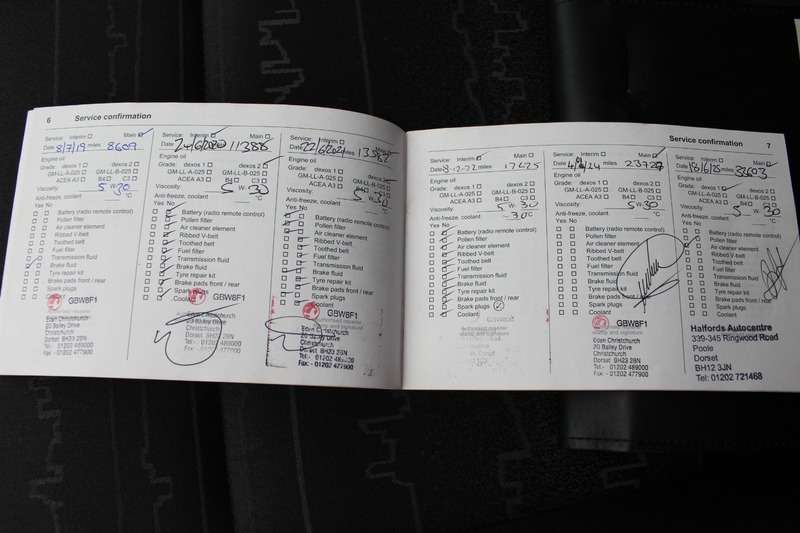 6 Service confirmation
Service: Interim Main
Date 8/7/19 miles 8609
Engine oil
Grade: dexos 1 dexos 2
GM-LL-A-025 GM-LL-B-025
ACEA A3 B4 C3
Viscosity 5 W 30
Anti-freeze, coolant °C
Yes No
Battery (radio remote control)
Pollen filter
Air cleaner element
Ribbed V-belt
Toothed belt
Fuel filter
Transmission fluid
Brake fluid
Tyre repair kit
Brake pads front / rear
Spark plugs
Coolant
GBW8F1
Eden Christchurch
20 Bailey Drive
Christchurch
Dorset BH23 2BN
Tel:- 01202 489000
Fax:- 01202 477900
Service: Interim Main
Date 24/6/2020 11388
Engine oil
Grade: dexos 1 dexos 2
GM-LL-A-025 GM-LL-B-025
ACEA A3 B4 C3
Viscosity 5 W 30
Anti-freeze, coolant °C
Yes No
Battery (radio remote control)
Pollen filter
Air cleaner element
Ribbed V-belt
Toothed belt
Fuel filter
Transmission fluid
Brake fluid
Tyre repair kit
Brake pads front / rear
Spark plugs
Coolant
GBW8F1
Eden Christchurch
20 Bailey Drive
Christchurch
Dorset BH23 2BN
Tel:- 01202 489000
Fax:- 01202 477900
Service: Interim Main
Date 22/6/2021 miles 13582
Engine oil
Grade: dexos 1 dexos 2
GM-LL-A-025 GM-LL-B-025
ACEA A3 B4 C3
Viscosity 5 W 30
Anti-freeze, coolant °C
Yes No
Battery (radio remote control)
Pollen filter
Air cleaner element
Ribbed V-belt
Toothed belt
Fuel filter
Transmission fluid
Brake fluid
Tyre repair kit
Brake pads front / rear
Spark plugs
Coolant
GBW8F1
Eden Christchurch
20 Bailey Drive
Christchurch
Dorset BH23 2BN
Tel:- 01202 489000
Fax:- 01202 477900
Service confirmation 7
Service: Interim Main
Date 8-12-22 miles 17625
Engine oil
Grade: dexos 1 dexos 2
GM-LL-A-025 GM-LL-B-025
ACEA A3 B4 C3
Viscosity 5 W 30
Anti-freeze, coolant -30 °C
Yes No
Battery (radio remote control)
Pollen filter
Air cleaner element
Ribbed V-belt
Toothed belt
Fuel filter
Transmission fluid
Brake fluid
Tyre repair kit
Brake pads front / rear
Spark plugs
Coolant
Service: Interim Main
Date miles 23727
Engine oil
Grade: dexos 1 dexos 2
GM-LL-A-025 GM-LL-B-025
ACEA A3 B4 C3
Viscosity 5 W 30
Anti-freeze, coolant °C
Yes No
Battery (radio remote control)
Pollen filter
Air cleaner element
Ribbed V-belt
Toothed belt
Fuel filter
Transmission fluid
Brake fluid
Tyre repair kit
Brake pads front / rear
Spark plugs
Coolant
GBW8F1
Eden Christchurch
20 Bailey Drive
Christchurch
Dorset BH23 2BN
Tel:- 01202 489000
Fax:- 01202 477900
Service: Interim Main
Date 18/6/25 miles
Engine oil
Grade: dexos 1 dexos 2
GM-LL-A-025 GM-LL-B-025
ACEA A3 B4 C3
Viscosity 5 W 30
Anti-freeze, coolant °C
Yes No
Battery (radio remote control)
Pollen filter
Air cleaner element
Ribbed V-belt
Toothed belt
Fuel filter
Transmission fluid
Brake fluid
Tyre repair kit
Brake pads front / rear
Spark plugs
Coolant
Halfords Autocentre
339-345 Ringwood Road
Poole
Dorset
BH12 3JN
Tel: 01202 721468